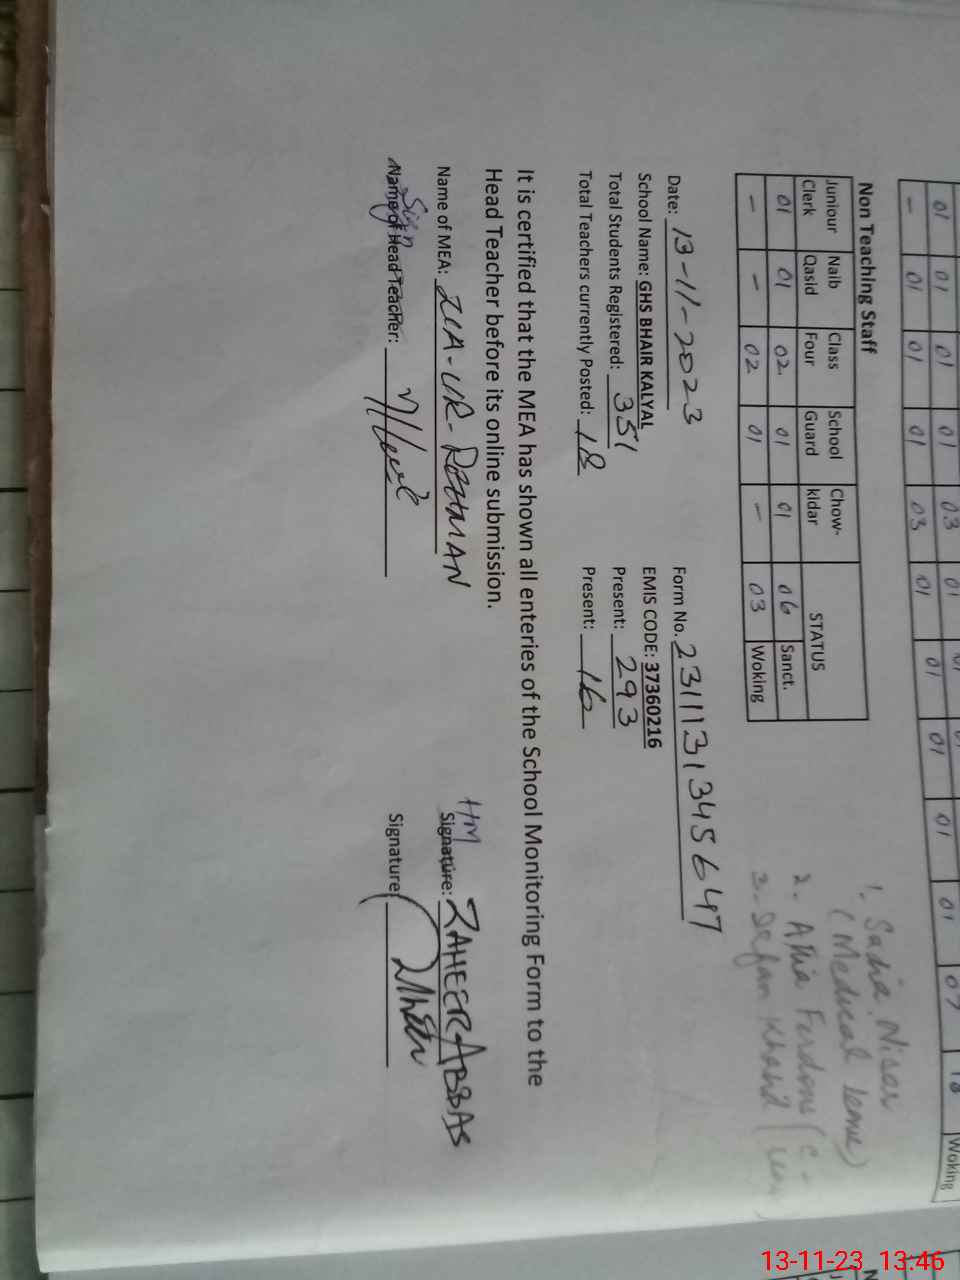 01 01 01 01 03 01 01 01 01 01 07 18 Woking
- 01 01 01 03 01
Non Teaching Staff
Juniour Clerk Naib Qasid Class Four School Guard Chow-kidar STATUS
01 01 02 01 01 06 Sanct.
- - 02 01 - 03 Woking
1. Sadia Nisar
(Medical leave)
2. Atia
3. Khanid
Date: 13-11-2023 Form No. 23111313456497
School Name: GHS BHAIR KALYAL EMIS CODE: 37360216
Total Students Registered: 351 Present: 293
Total Teachers currently Posted: 18 Present: 16
It is certified that the MEA has shown all enteries of the School Monitoring Form to the
Head Teacher before its online submission.
Name of MEA: ZIA-UR-REHMAN HM Signature: ZAHEER ABBAS
Sign Name of Head Teacher: Signature
13-11-23 13:46